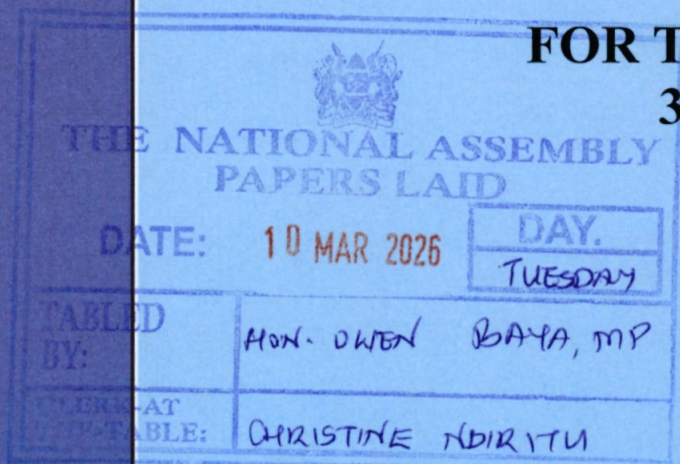 FOR T
3
THE NATIONAL ASSEMBLY
PAPERS LAID
DATE: 10 MAR 2026
DAY.
TUESDAY
TABLED BY:
HON. OWEN BAYA, MP
CLERK-AT THE-TABLE:
CHRISTINE NDIRITU